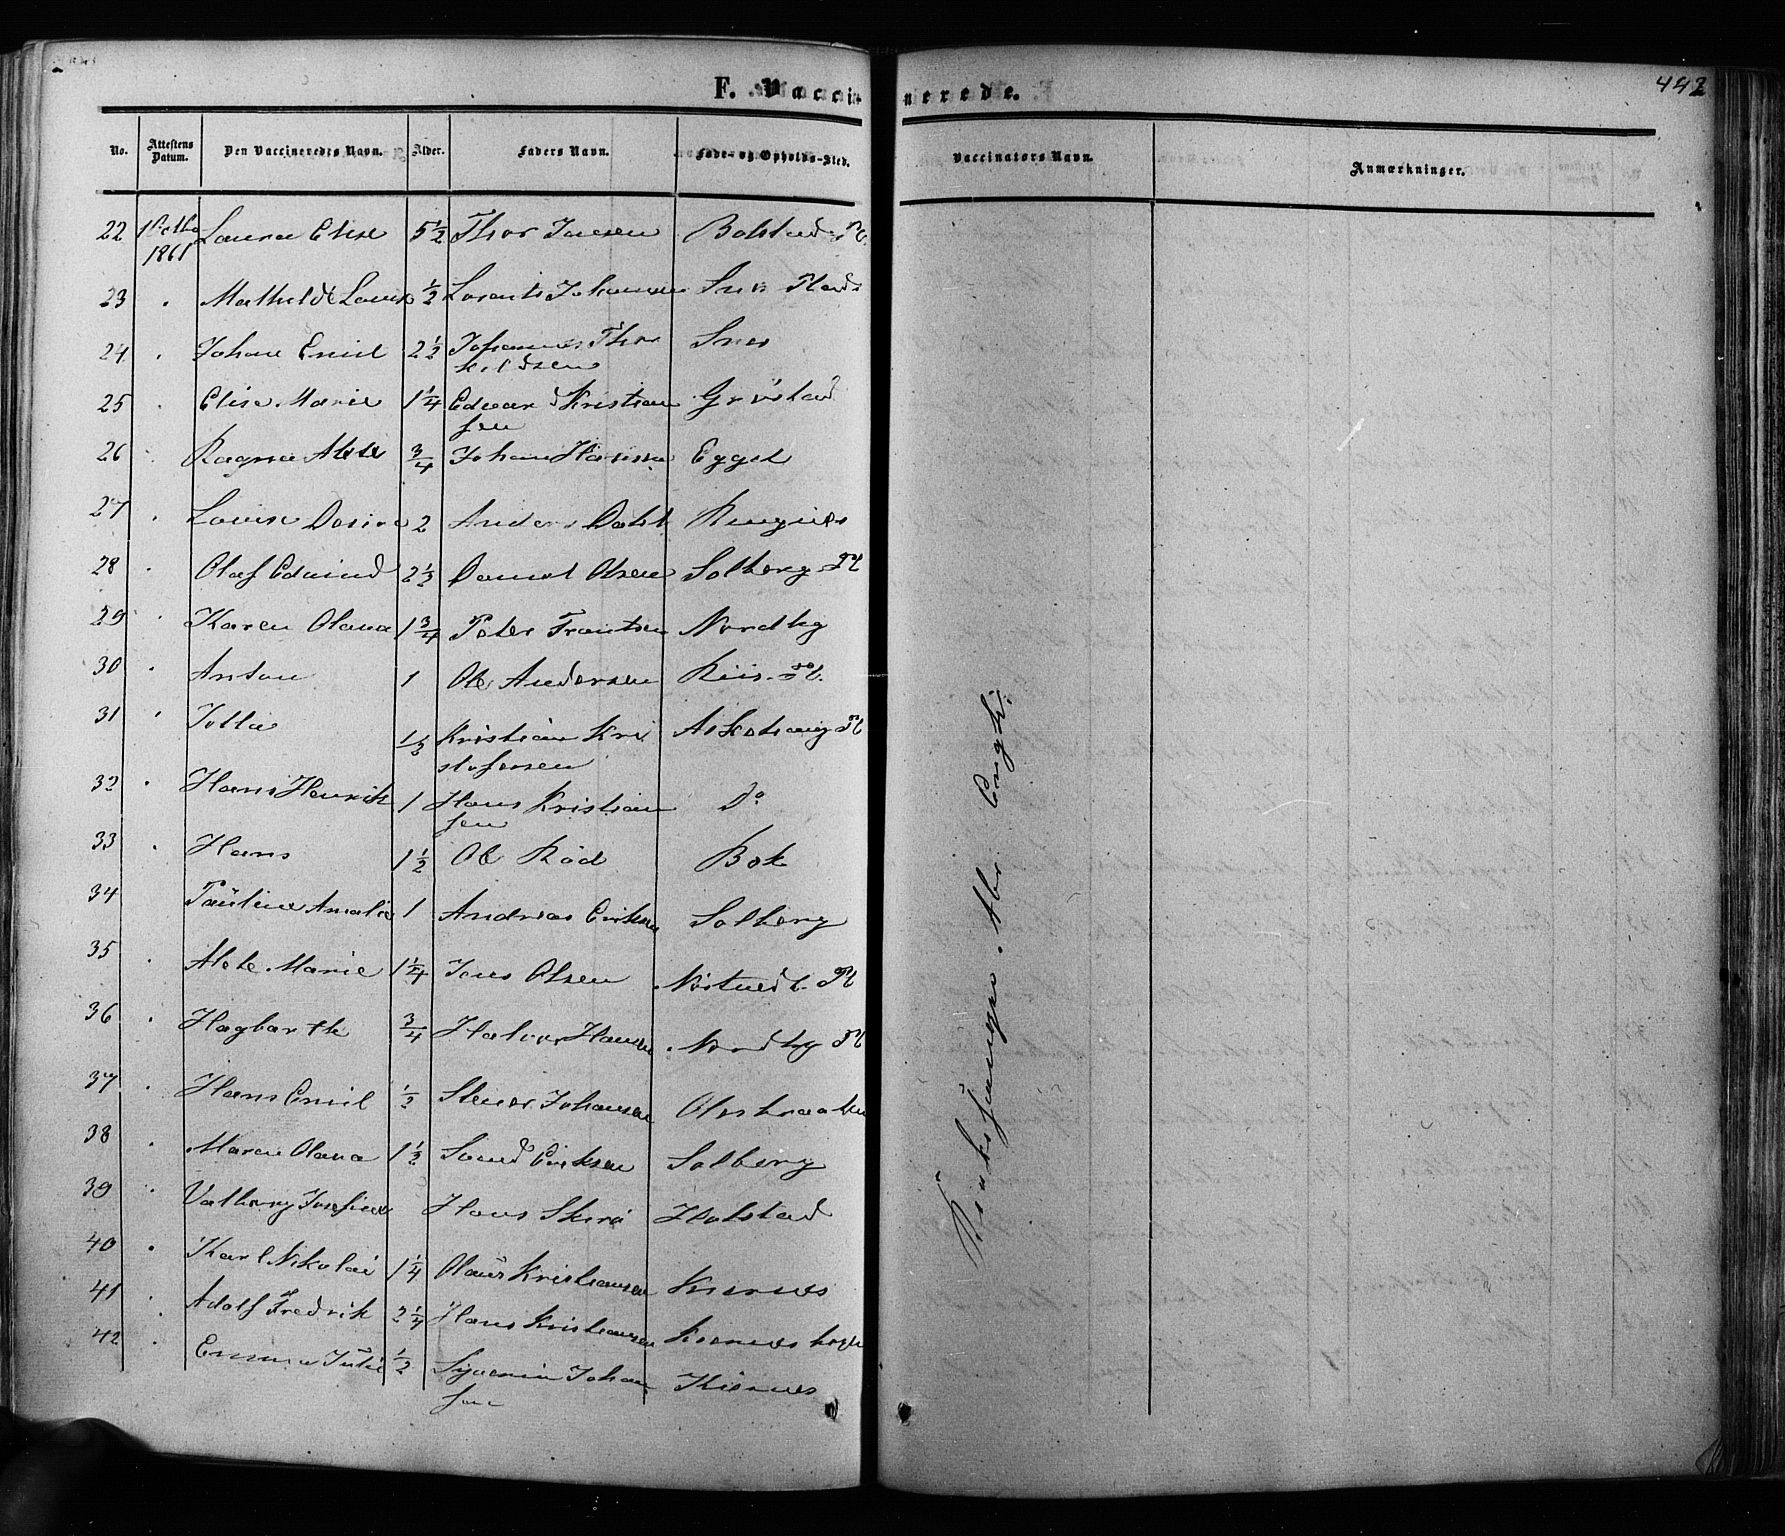 F. Vaccinerede.
442
No. Attestens Datum. Den Vaccineredes Navn. Alder. Faders Navn. Føde- og Opholds-Sted. Vaccinators Navn. Anmærkninger.
22 1861 Laura Elise 5½ Thor Jansen Bolstad Pl.
23 " Mathilde Lovise ½ Lorents Johansen Snes
24 " Johan Emil 2½ Johannes Thorkildsen Snes
25 " Elise Marie 1¼ Edvard Kristiansen Grøstad
26 " Ragna Alete ¾ Johan Hansen Egget
27 " Lovise 2 Anders Dahl Ringnes
28 " Olaf Edvind 2½ Daniel Olsen Solberg Pl
29 " Karen Olava 1¾ Peter Frantsen Nordby
30 " Anton 1 Ole Andersen Riis Pl.
31 " Jotta ½ Kristian Kristofersen Askehaug Pl
32 " Hans Henrik 1 Hans Kristiansen Do
33 " Hans 1½ Ole Rød Bøk
34 " Pauline Amalie 1 Andreas Eriksen Solberg
35 " Alete Marie 1¼ Jens Olsen Nøstvedt Pl
36 " Hagbarth ¾ Halvor Hansen Nordby Pl
37 " Hans Emil ½ Stener Johansen
38 " Maren Olava 1½ Eriksen Solberg
39 " Valborg Josefine Hans Skrø Holstad
40 " Karl Nikolai 1¼ Olaus Kristiansen Kjernes
41 " Adolf Fredrik 2¼ Hans Kristiansen Kjernes
42 " Emma Julie ½ Johansen Kjernes
Abr.